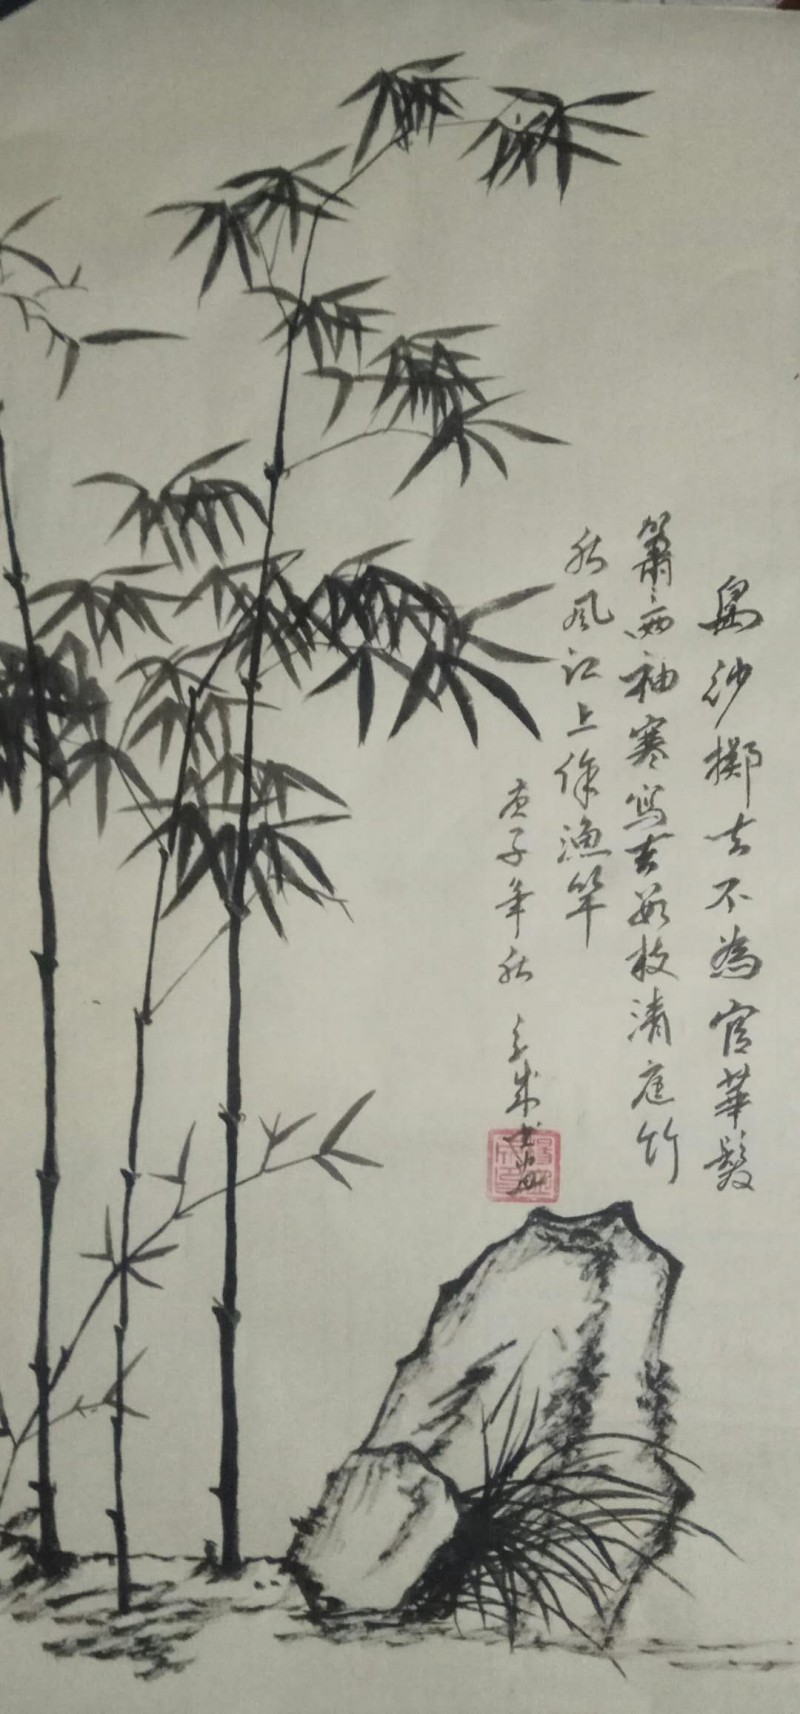 烏紗擲去不為官華髮
蕭〻两袖寒寫去數枝清瘦竹
秋風江上作漁竿
庚子年秋 成书画